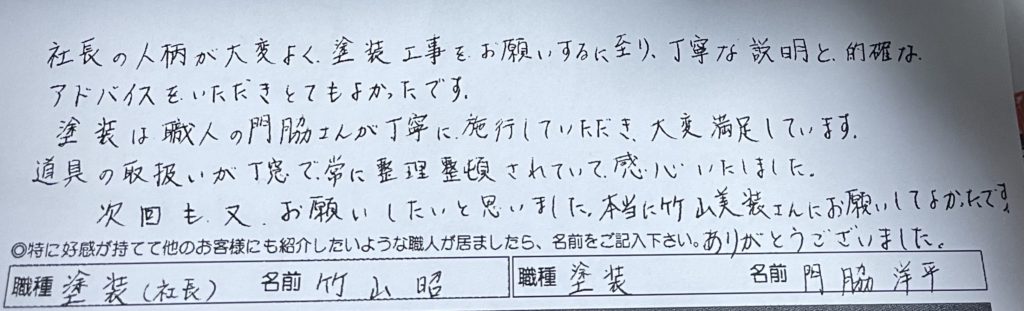 社長の人柄が大変よく、塗装工事をお願いするに至り、丁寧な説明と、的確な
アドバイスをいただきとてもよかったです。
塗装は職人の門脇さんが丁寧に施行していただき、大変満足しています。
道具の取扱いが丁寧で、常に整理整頓されていて、感心いたしました。
次回も、又、お願いしたいと思いました。本当に竹山美装さんにお願いしてよかったです。
ありがとうございました。
◎特に好感が持てて他のお客様にも紹介したいような職人が居ましたら、名前をご記入下さい。
職種 塗装(社長) 名前 竹山 昭 職種 塗装 名前 門脇 洋平